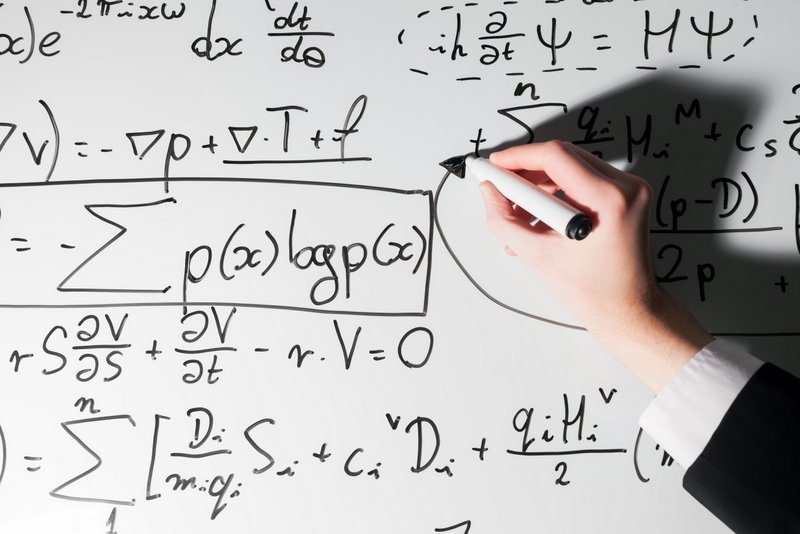 x)e^{-2πixω} dx dt/dθ
iħ ∂/∂t Ψ = HΨ
∇v) = -∇p + ∇·T + f
+ ∑ n q_i H_i^M + c_s
= -∑ p(x) log p(x)
(p-D) / 2p +
rS ∂V/∂S + ∂V/∂t - r·V = 0
) = ∑ n 1 [ D_i/m_i q_i S_i + c_i^v D_i + q_i H_i^v / 2 (